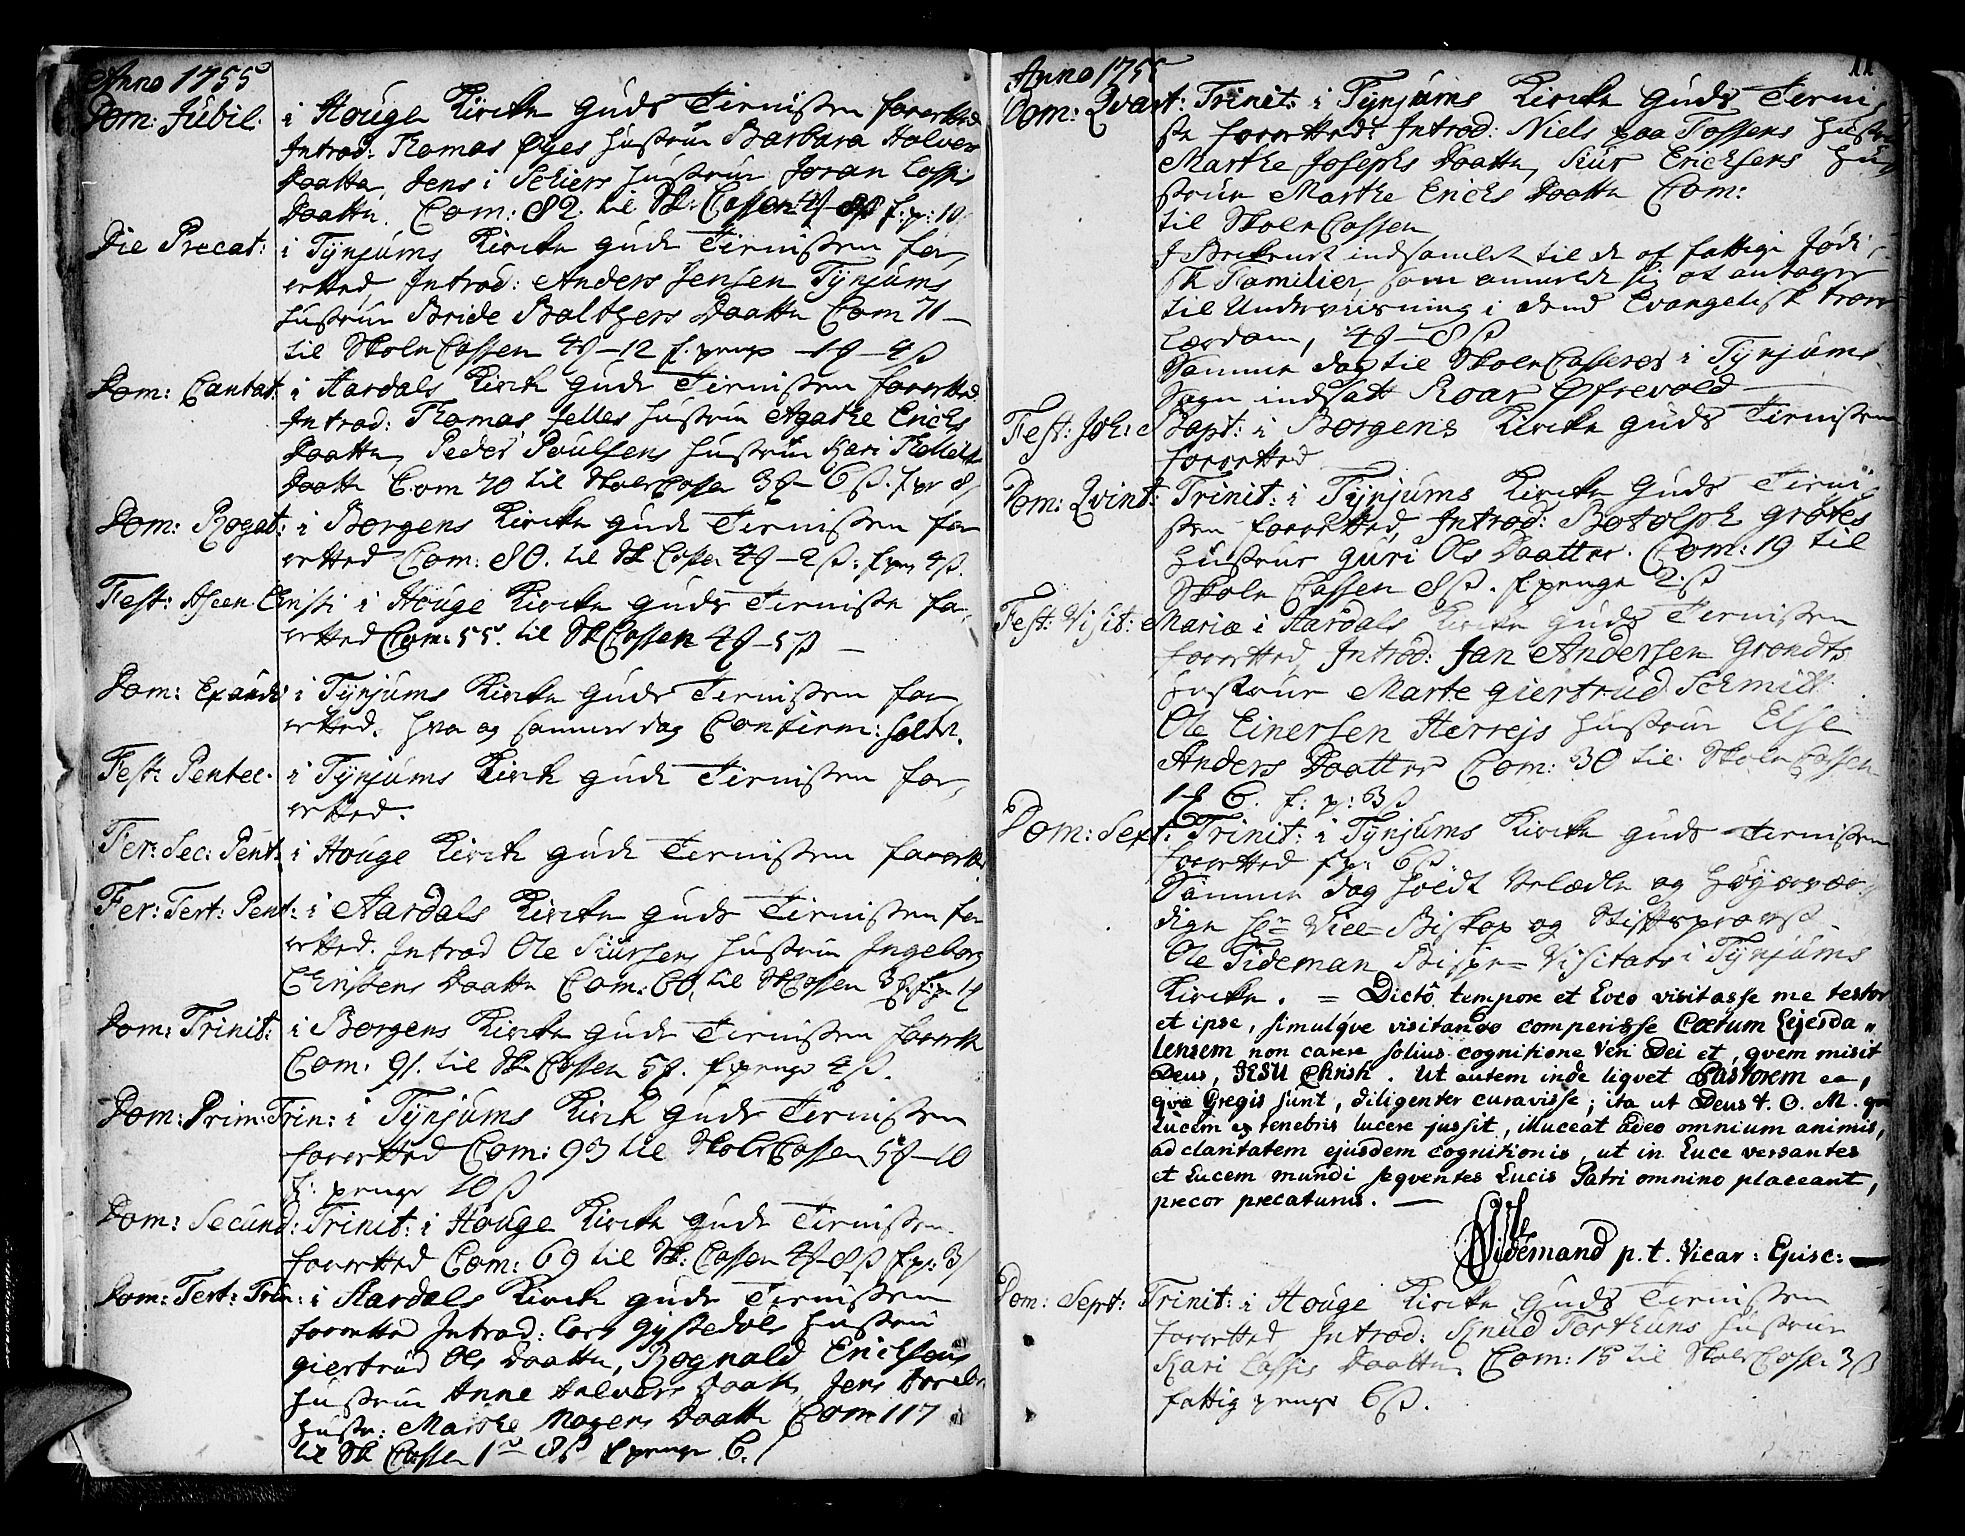 Anno 1755
Dom: Jubil. i Houge Kircke Guds Tienisten forrettet
Introd: Thomas Øyes Hustrue Barbara Halvers
Daatter, Jens i Schiers Hustrue Joran Lassis
Daatter. Com: 82. til Sk: Cassen 4 f: p: 10
Die Precat: i Tynjums Kircke Guds Tienisten for,
rettet, Introd: Anders Jensen Tynjums
Hustrue Bride Baltzers Daatter Com 71 —
til Skole Cassen 4 — 12 f. penge — 1 — 4 ß
Dom: Cantat: i Aardals Kircke Guds Tienisten forrettet
Introd: Thomas Jelles Hustrue Agathe Erichs
Daatter, Peder Poulsens Hustrue Kari
Daatter Com 70 til Skole Cassen 3 — 6 ß. f. p 8
Dom: Rogat: i Borgens Kircke Guds Tienisten for
rettet Com: 80. til Sk Cassen 4 — 2 ß: f. pen 4 ß.
Fest: Ascen: Christi i Houge Kircke Guds Tieniste for,
rettet Com: 55. til Sk Cassen 4 — 5 ß —
Dom: Exaudi i Tynjums Kircke Guds Tienisten for,
rettet. Hvor og samme dag Confirm: holdt.
Fest: Pentec. i Tynjums Kircke Guds Tienisten for,
rettet.
Fer: Sec: Pent. i Houge Kircke Guds Tienisten forrettet
Fer: Tert: Pent: i Aardals Kircke Guds Tienisten for
rettet. Introd Ole Siursens Hustrue Ingeborg
Christens Daatter Com: 60, til Sk Cassen 3
Dom: Trinit: i Borgens Kircke Guds Tienisten forrettet
Com: 91. til Sk. Cassen 5. f. penge 4 ß.
Dom: Prim: Trin: i Tynjums Kircke Guds Tienisten
forrettet Com: 93 til Skole Cassen 5 — 10
f: penge 10 ß
Dom: Secund: Trinit: i Houge Kircke Guds Tienisten
forrettet Com: 69 til Sk: Cassen 4 — 8 ß f. p: 3
Dom: Tert: Trin: i Aardals Kircke Guds Tienisten
forrettet Introd: Lars Gystedals Hustrue
Giertrud Ols Daatter, Rognald Erichsens
Hustrue Anne Halvers Daatter, Jens
Hustr: Marthe Mogens Daatter Com 117
til Sk Cassen 1 8 ß f penge 6.
Anno 1755
11
Dom: Qvart: Trinit: i Tynjums Kircke Guds Tieni,
ste forrettet: Introd: Niels paa Tossens Hustrue
Marthe Josephs Daatter, Siur Erichsens Hu,
strue Marthe Erichs Daatter Com:
til Skole Cassen
J Bekenet indsamlet til de af fattige Jødi,
ske Familier, som anmeldt sig at antages
til Underviisning i dend Evangelisk troes
Lærdom, 4 — 8 ß
Samme dag til Skole Casserer i Tynjums
Sogn indsatt Roar Øfrevold —
Fest: Joh: Bapt: i Borgens Kircke Guds Tienisten
forrettet
Dom: Qvint: Trinit: i Tynjums Kircke Guds Tieni,
sten forrettet, Introd: Botolph Grøtes
Hustrue Guri Ols Daatter. Com: 19 til
Skole Cassen 8 ß. f. penge 2 ß
Fest: Visit: Mariæ i Aardals Kircke Guds Tienisten
forrettet, Introd: Jan Andersen Grondts
Hustrue Marte Giertrud Schmidt.
Ole Einersen Herrejs Hustrue Else
Anders Daatter Com: 30 til Skole Cassen
1 6. f: p: 3 ß
Dom: Sext: Trinit: i Tynjums Kircke Guds Tienisten
forrettet f p: 6 ß.
Samme dag holdt Velædle og Høyærvær,
dige Hr: Vice-Biskop og Stiftsprovst
Ole Tideman Bispe-Visitats i Tynjums
Kircke. = Dictô tempore et Loco visitasse me testor
et ipse, simulqve visitando comperisse Cœtum Lejesda„
lensem non carere solius cognitione Veri Dei et, qvem misit
Deus, JESU Christi. Ut autem inde liqvet Pastorem ea,
qvæ Gregis sunt, diligenter curavisse; ita ut Deus t. O. M. qvi
Lucem ex tenebris lucere jussit, illuceat adeo omnium animis,
ad claritatem ejusdem cognitionis, ut in Luce versantes
et Lucem mundi seqventes Lucis Patri omnino placeant,
precor precaturus. —
Ole Tidemand p. t. Vicar: Episc: —
Dom: Sept: Trinit: i Houge Kircke Guds Tienisten
forrettet Introd: Knud Torthuns Hustrue
Kari Lassis Daatter, Com: 15 til Skole Cassen 3 ß
fattig penge 6 ß.